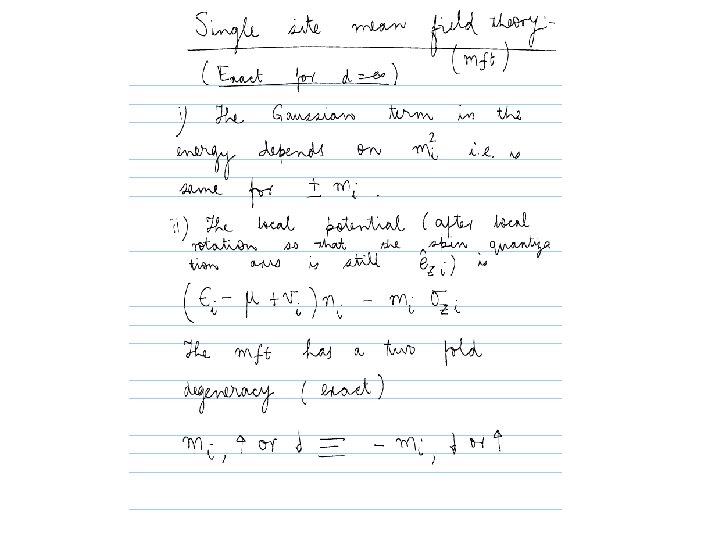 Single site mean field theory:-
(mft)
(Exact for d = ∞)
i) The Gaussian term in the
energy depends on m_i^2 i.e. is
same for ± m_i.
ii) The local potential (after local
rotation so that the spin quantiza
tion axis is still ê_zi) is
(ϵ_i - μ + v_i) n_i - m_i σ_zi
The mft has a two fold
degeneracy (exact)
m_i, ↑ or ↓ ≡ - m_i, ↓ or ↑